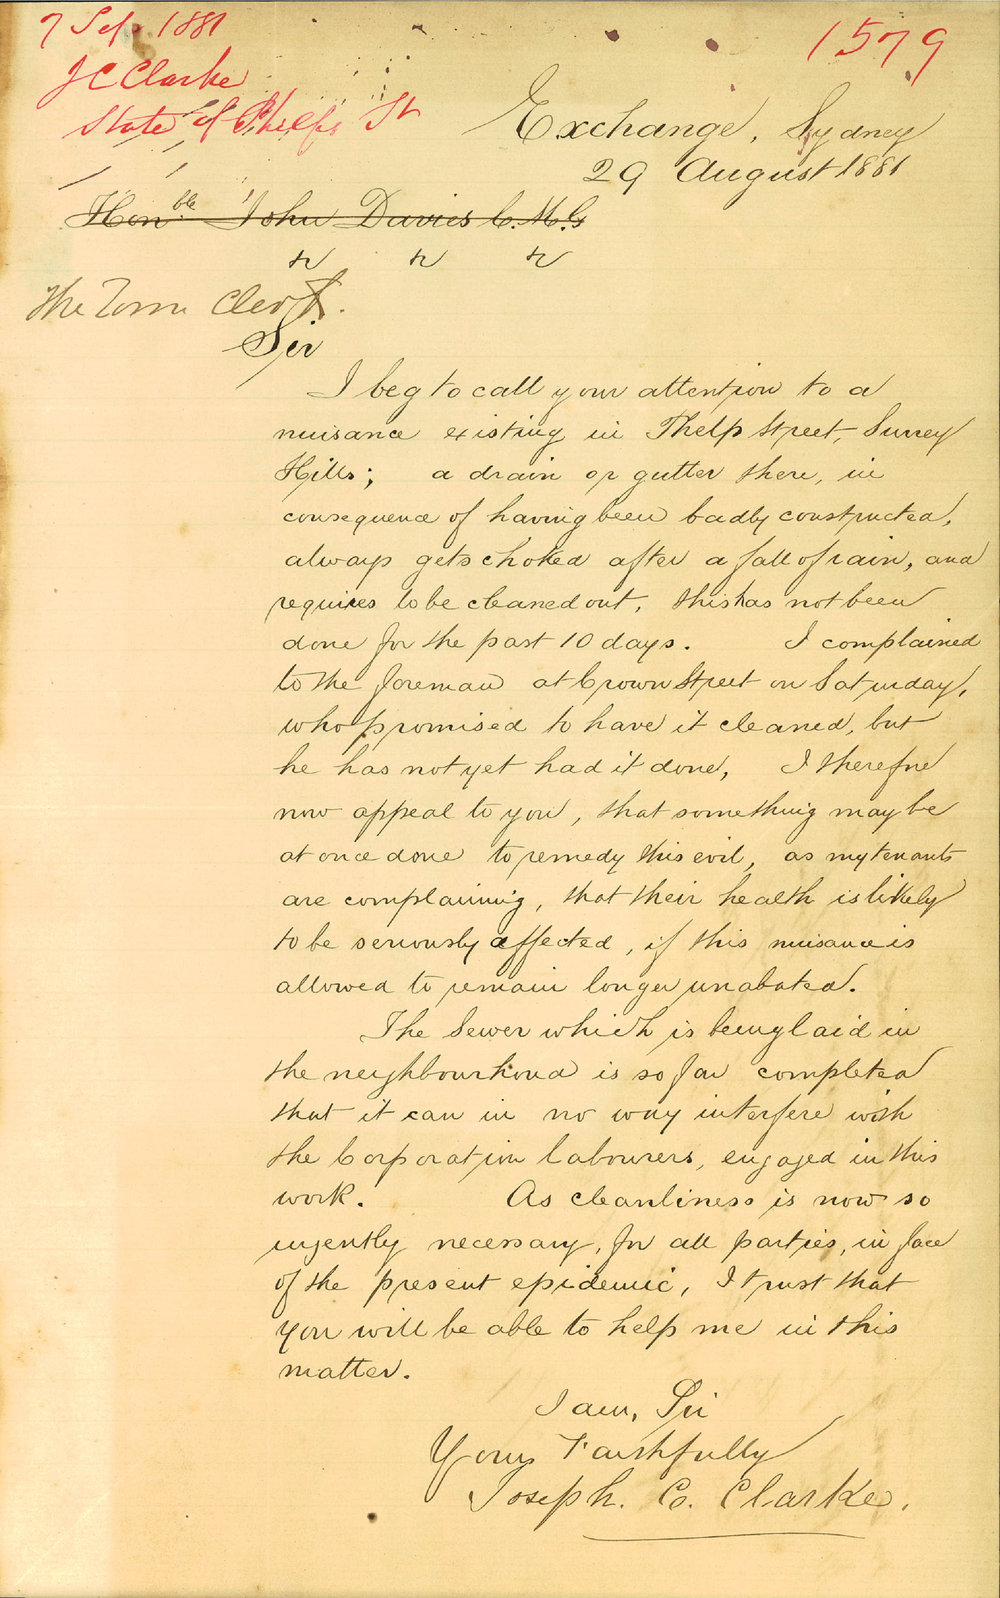 7 Sep 1881
1579
J C Clarke
State of Phelps St
Exchange, Sydney
29 August 1881
Honble John Davies C.M.G
The Town Clerk.
Sir
I beg to call your attention to a
nuisance existing in Phelp Street, Surrey
Hills; a drain or gutter there, in
consequence of having been badly constructed,
always gets choked after a fall of rain, and
requires to be cleaned out, this has not been
done for the past 10 days. I complained
to the foreman at Crown Street on Saturday,
who promised to have it cleaned, but
he has not yet had it done, I therefore
now appeal to you, that something may be
at once done to remedy this evil, as my tenants
are complaining, that their health is likely
to be seriously affected, if this nuisance is
allowed to remain longer unabated.
The Sewer which is being laid in
the neighbourhood is so far completed
that it can in no way interfere with
the Corporation labourers, engaged in this
work. As cleanliness is now so
urgently necessary, for all parties, in face
of the present epidemic, I trust that
you will be able to help me in this
matter.
I am, Sir
Yours Faithfully
Joseph. C. Clarke.